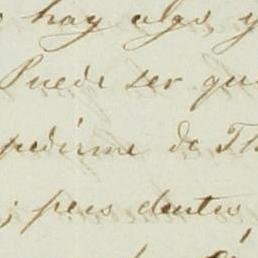 hay algo, y
Puede ser que
pedirme de Th
; pero dentro